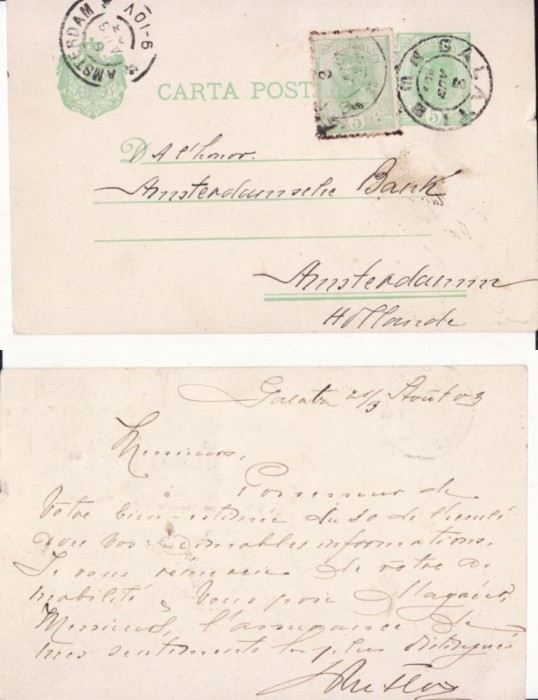 AMSTERDAM
9-10V
GALATI
CARTA POST
5
5
D A l'honor.
Amsterdamsche Bank
Amsterdamm
Hollande
Galatz Août 03
Messieurs,
de
Votre bien-estimée du 30 de l'écoulé
que vos aimables informations.
Je vous remercie de votre a-
mabilité & vous prie d'agréer,
Messieurs, l'assurance de
mes sentiments les plus distingués